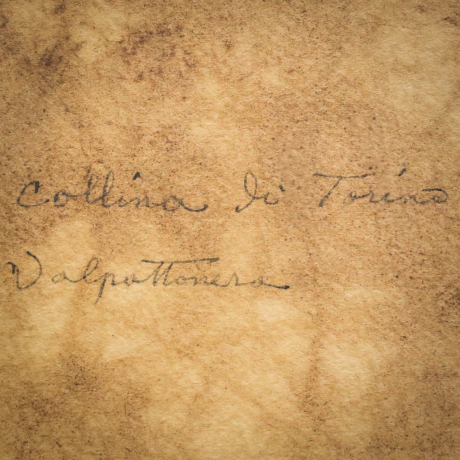 Collina di Torino
Valpattonera